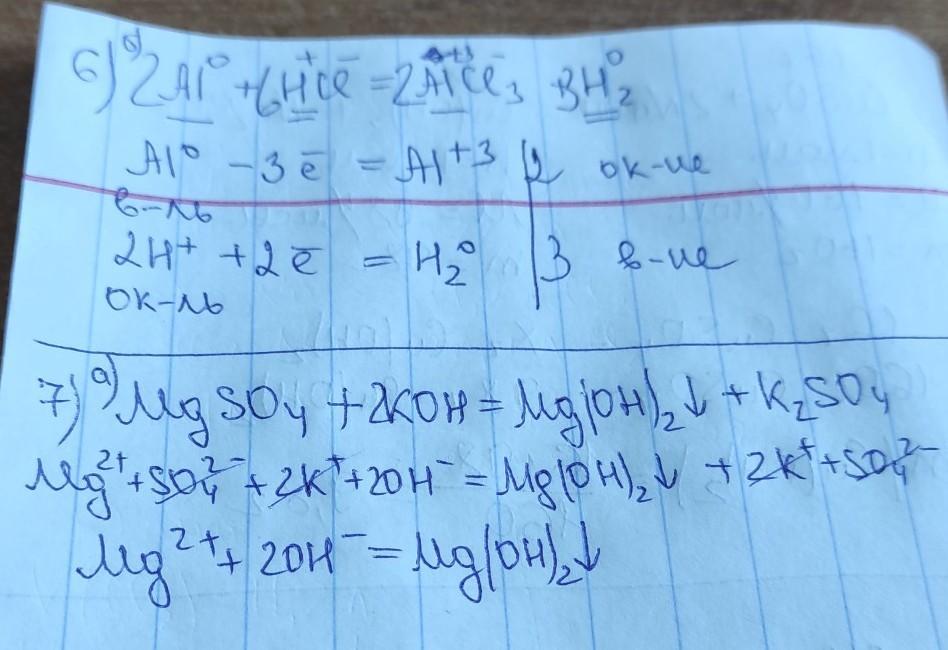 6) б) 2Al⁰ + 6H⁺Cl⁻ = 2Al⁺³Cl⁻₃ 3H⁰₂
Al⁰ - 3ē = Al⁺³ | 2 ок-ие
в-ль
2H⁺ + 2ē = H₂⁰ | 3 в-ие
ок-ль
7) а) MgSO₄ + 2KOH = Mg(OH)₂↓ + K₂SO₄
Mg²⁺ + SO₄²⁻ + 2K⁺ + 2OH⁻ = Mg(OH)₂↓ + 2K⁺ + SO₄²⁻
Mg²⁺ + 2OH⁻ = Mg(OH)₂↓